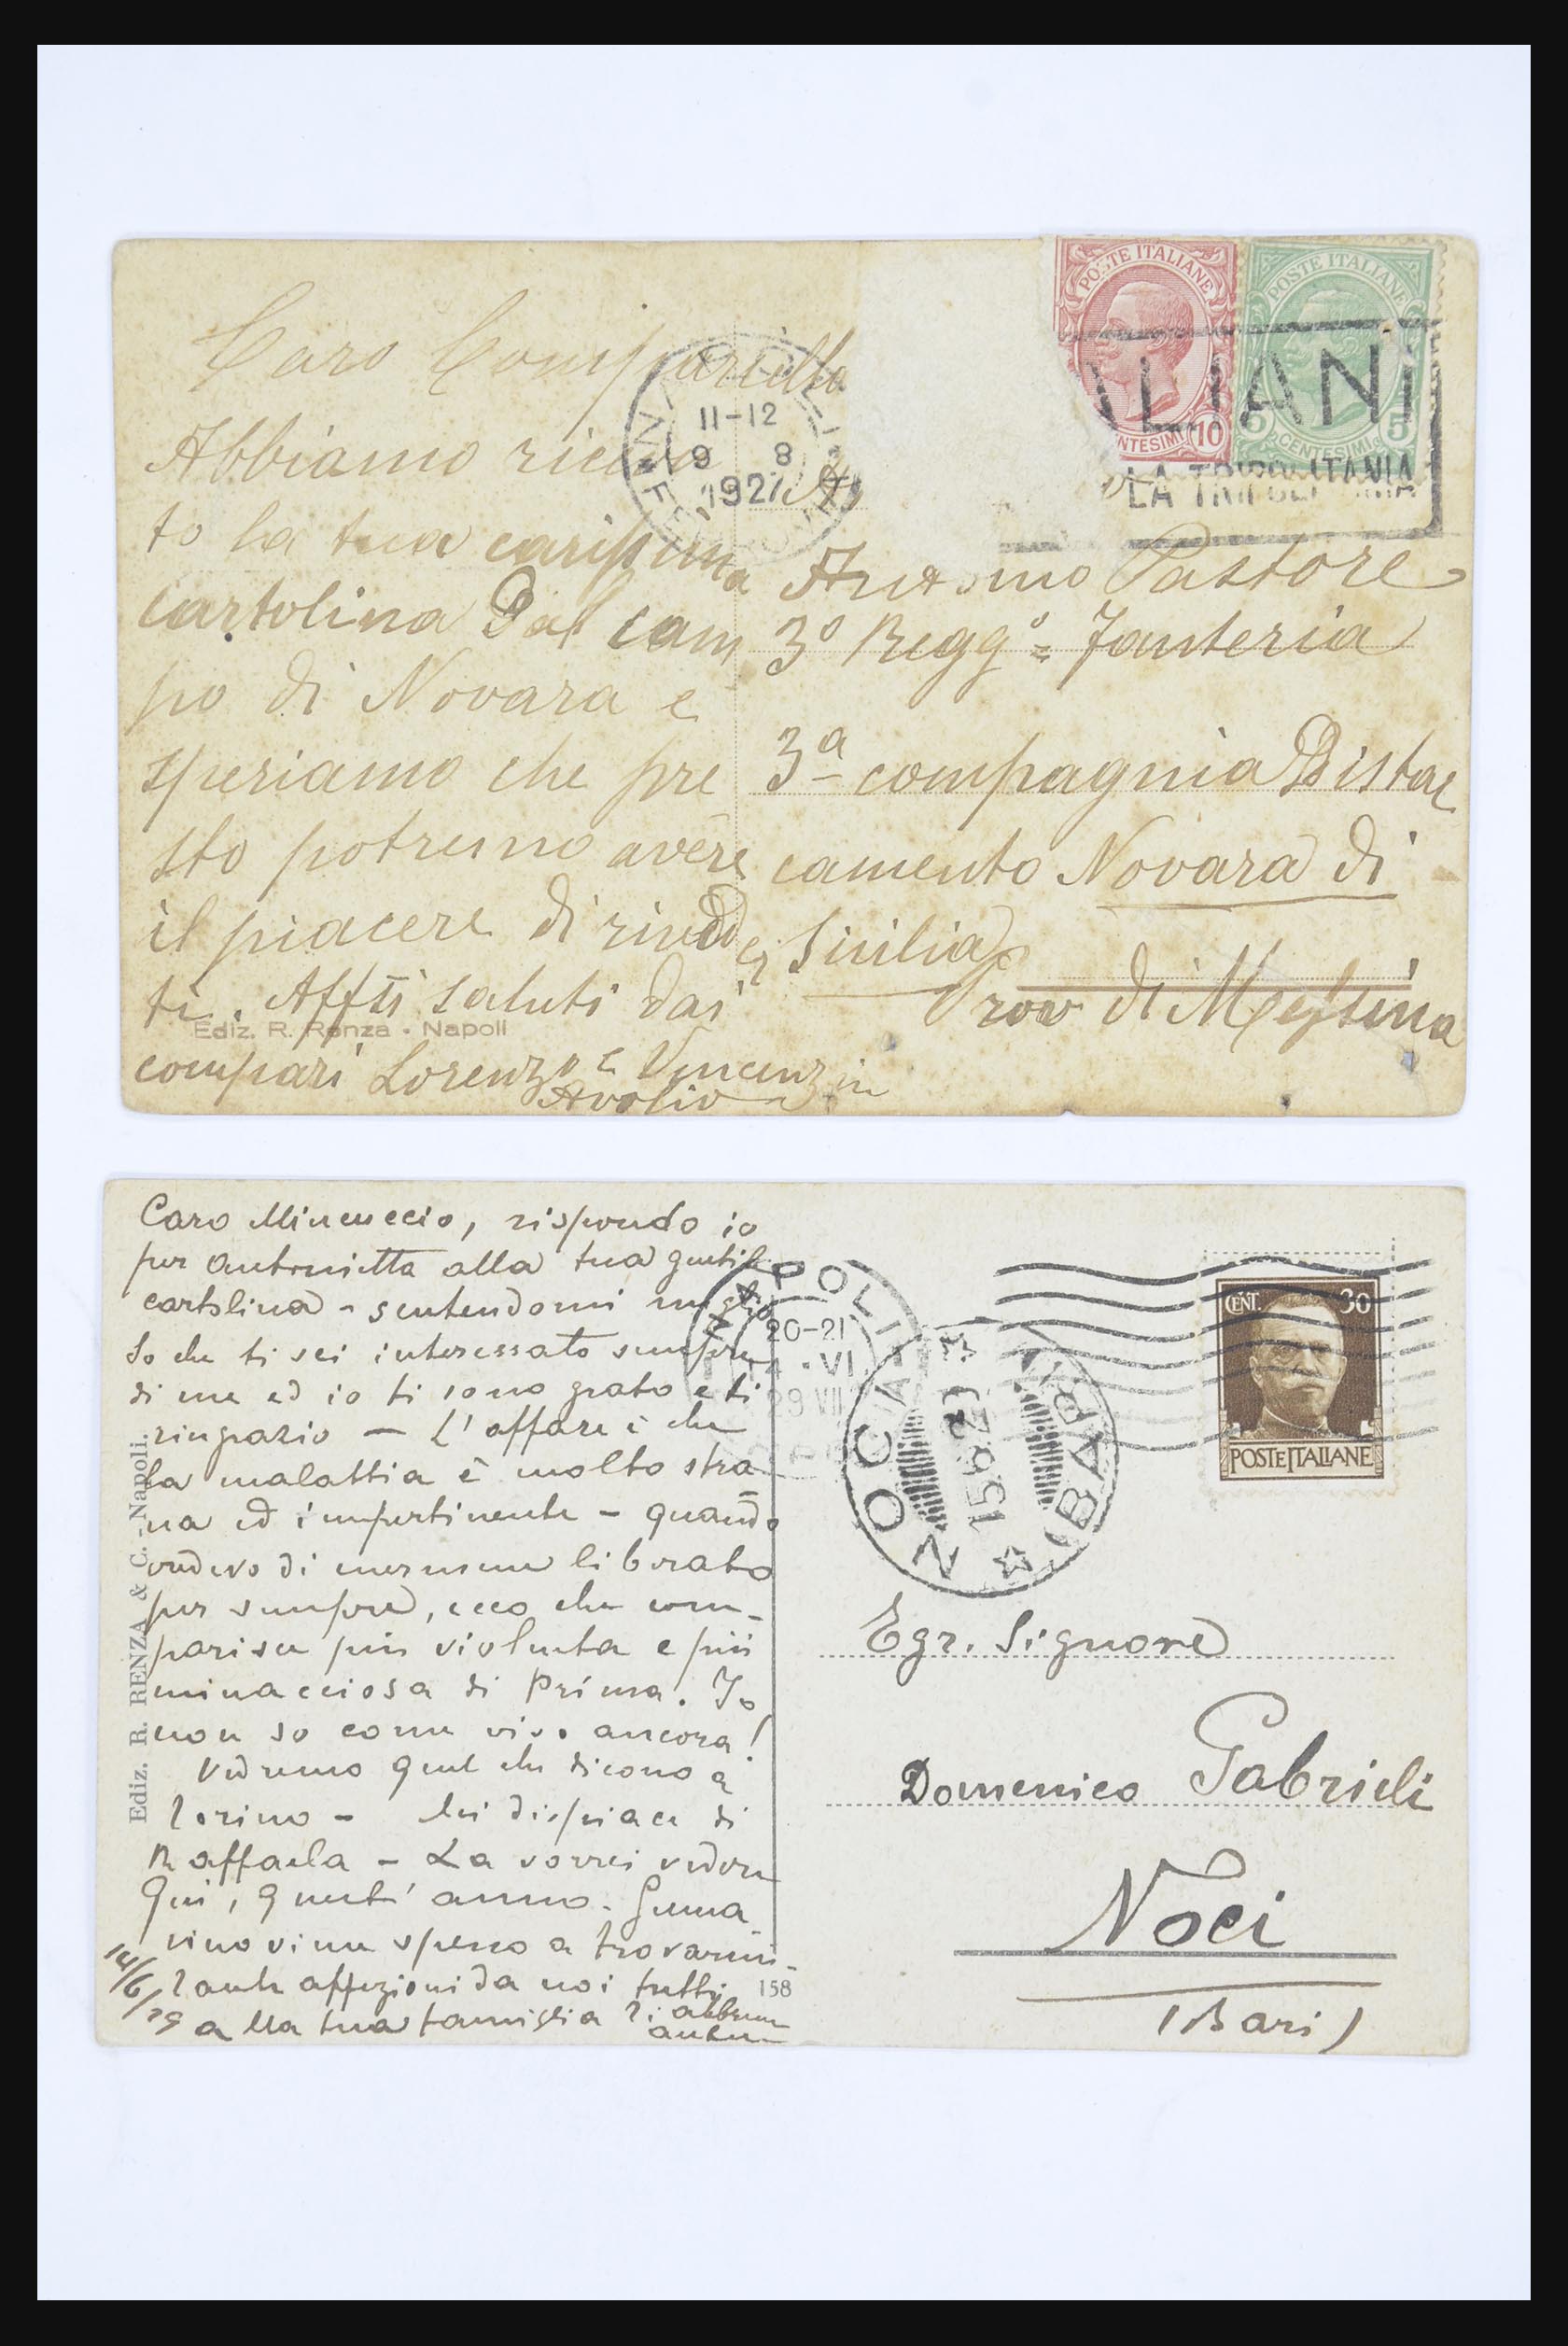 Caro Compariello
Abbiamo ricevu
to la tua carissima
cartolina dal cam
po di Novara e
speriamo che pre
sto potremo avere
il piacere di riveder
ti. Affti saluti dai
compari Lorenzo e Vincenzin
Avolio
Ediz. R. Renza - Napoli
NAPOLI
11-12
9 8
1927
POSTE ITALIANE
CENTESIMI 10
POSTE ITALIANE
5 CENTESIMI 5
ALIANI
LA TRIPOLITANIA
A
Antonio Pastore
3º Reggº = Fanteria
3ª compagnia Distac
camento Novara di
Sicilia
Prov di Messina
Caro Mincuccio, rispondo io
per Antonietta alla tua gentile
cartolina - sentendomi meglio
So che ti sei interessato sempre
di me ed io ti sono grato e ti
ringrazio — L'affare è che
la malattia è molto stra=
na ed impertinente - quando
credevo di essermene liberato
per sempre, ecco che com-
parisce più violenta e più
minacciosa di prima. Io
non so come vivo ancora!
Vedremo quel che dicono a
Torino - Mi dispiace di
Raffaela - La vorrei vedere
qui, quest'anno.
viene spesso a trovarmi -
Tante affezioni da noi tutti
a lla tua famiglia
14/6/29
Ediz. R. RENZA & C. - Napoli.
158
NAPOLI
20-21
14 · VI
29 VII
NOCI
15.6.29
(BARI)
CENT. 30
POSTE ITALIANE
Egr. Signore
Domenico Gabrieli
Noci
(Bari)